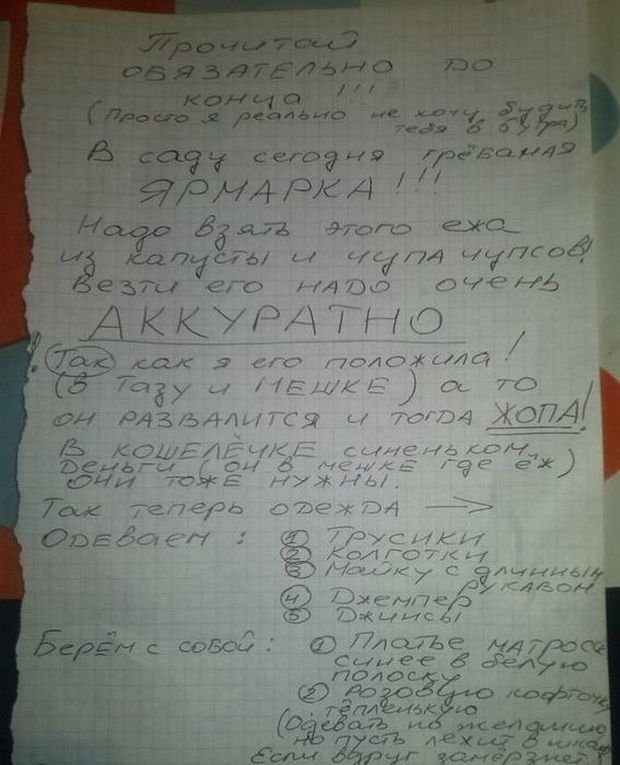 Прочитай
ОБЯЗАТЕЛЬНО ДО
КОНЦА!!!
(Просто я реально не хочу будить
тебя в 5 утра)
В саду сегодня грёбаная
ЯРМАРКА!!!
Надо взять этого ежа
из капусты и чупа чупсов!
Везти его НАДО очень
АККУРАТНО
! Так как я его положила!
(В Тазу и МЕШКЕ) а то
он РАЗВАЛИТСЯ и тогда ЖОПА!
В кошелёчке синеньком
деньги (он в мешке где ёж)
они тоже нужны.
Так теперь одежда →
ОДЕВАЕМ: ① Трусики
② Колготки
③ Майку с длинным
рукавом
④ Джемпер
⑤ Джинсы
Берём с собой: ① Платье матроса
синее в белую
полоску
② Розовую кофточку
тёпленькую
(Одевать по желанию
но пусть лежит в шкаф
Если вдруг замёрзнет